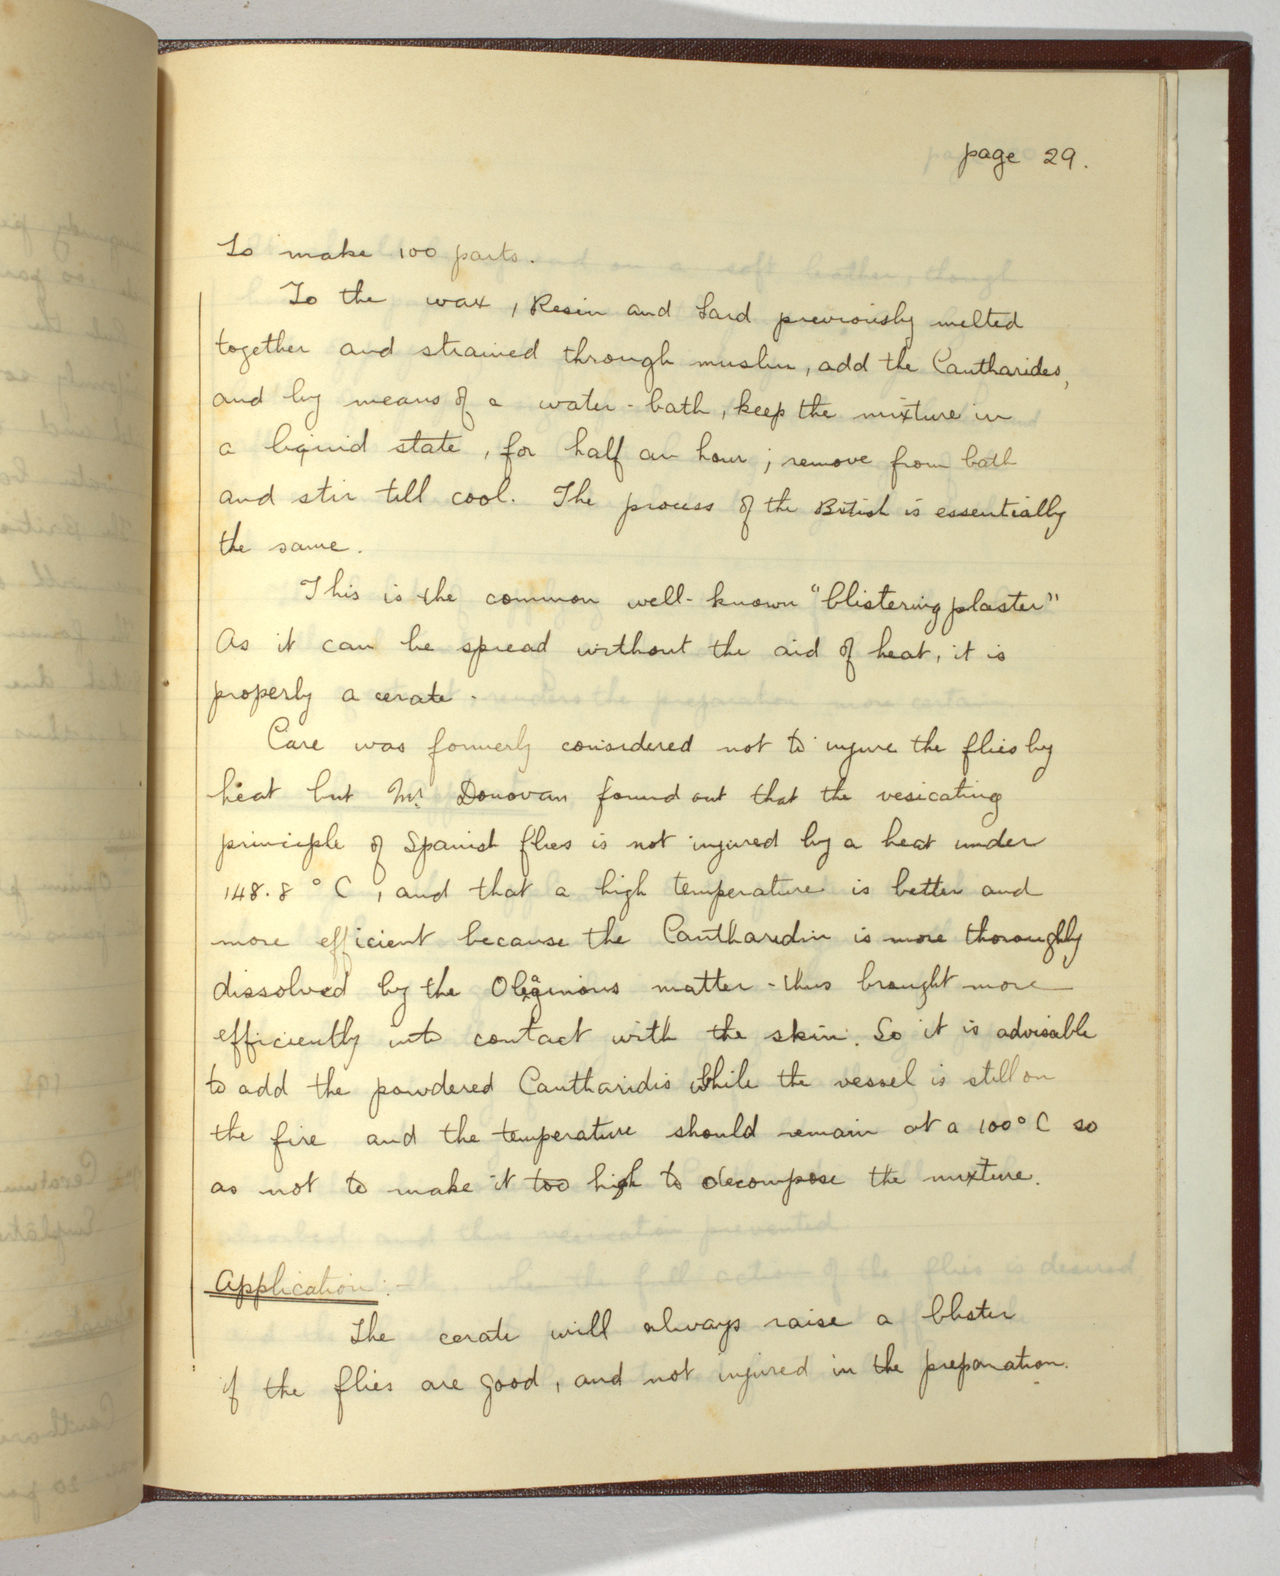 page 29.
To make 100 parts.
To the wax, Resin and Lard previously melted
together and strained through muslin, add the Cantharides,
and by means of a water-bath, keep the mixture in
a liquid state, for half an hour; remove from bath
and stir till cool. The process of the British is essentially
the same.
This is the common well-known "blistering plaster"
As it can be spread without the aid of heat, it is
properly a cerate.
Care was formerly considered not to injure the flies by
heat but Mr. Donovan found out that the vesicating
principle of Spanish flies is not injured by a heat under
148.8 °C, and that a high temperature is better and
more efficient because the Cantharidin is more thoroughly
dissolved by the Oleaginous matter - thus brought more
efficiently into contact with the skin. So it is advisable
to add the powdered Cantharidis while the vessel is still on
the fire and the temperature should remain at a 100°C so
as not to make it too high to decompose the mixture.
Application:-
The cerate will always raise a blister
if the flies are good, and not injured in the preparation.